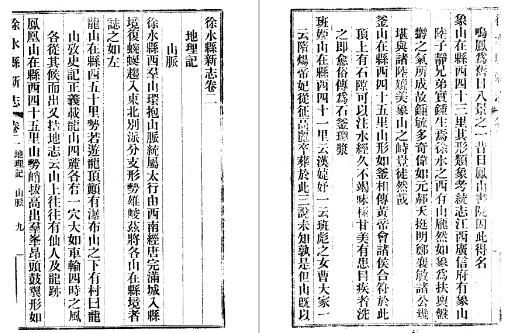 徐水縣新志卷二
地理記
山脈
徐水縣西羣山環抱山脈統屬太行由西南經唐完滿城入縣
境復蜿蜒趨入東北別派分支形勢雄峻茲將各山在縣境者
誌之如左
龍山在縣西五十里勢若遊龍頂顛有瀑布山之下有村曰龍
山攷史記正義載龍山四麓各有一穴大如車輪四時之風
各從其候而出又括地志云山上往往有仙人及龍跡
鳳凰山在縣西四十五里山勢峭拔高出羣峯昂頭鼓翼形如
徐水縣新志 卷二 地理記 山脈 九
鳴鳳爲舊日八景之一昔日鳳山書院因此得名
象山在縣西四十三里其形類象考統志江西廣信府有象山
陸子靜兄弟實鍾生焉徐水之西有山龐然如象爲扶輿磐
礴之氣所成故鍾毓多奇偉如元郝天挺明鄭襄敏諸公幾
堪與諸陸媲美象山之峙豈徒然哉
釜山在縣西四十五里山形如釜相傳黃帝會諸侯合符於此
頂上有石隙可以注水經久不竭味極甘美有患目疾者洗
之即愈俗傳爲石釜瓊漿
班姬山在縣西四十一里云漢婕妤一云班彪之女曹大家一
云隋煬帝妃從征高麗卒葬於此三說未知孰是但山既以